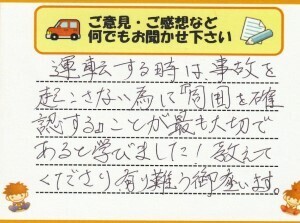 ご意見・ご感想など
何でもお聞かせ下さい
運転する時は、事故を
起こさない為に『周囲を確
認する』ことが最も大切で
あると学びました！教えて
くださり有り難う御座います。